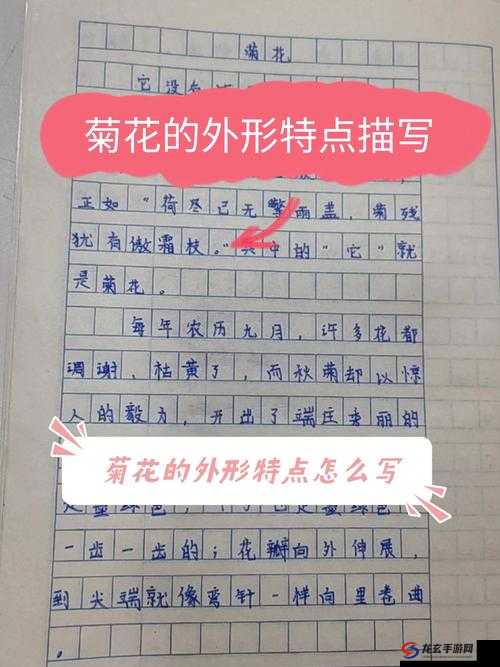 菊花
它没有
菊花的外形特点描写
正如“荷尽已无擎雨盖,菊残
犹有傲霜枝。”其中的“它”就
是菊花。
每年农历九月,许多花都
凋谢、枯黄了,而秋菊却以惊
人的毅力,开出了端庄秀丽的
菊花的外形特点怎么写
是墨绿色,
一齿一齿的;花瓣向外伸展,
到尖端就像弯针一样向里卷曲
。
龙玄手游网